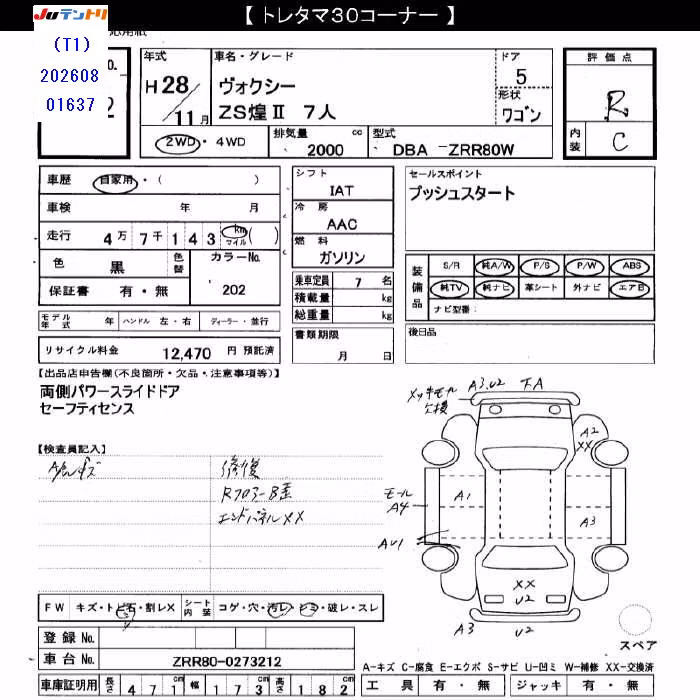 【 トレタマ30コーナー 】
JUテントリ
(T1)
202608
01637
No.
2
年式
H 28/11月
車名・グレード
ヴォクシー
ZS煌Ⅱ 7人
ドア
5
形状
ワゴン
評価点
R
内装
C
2WD・4WD
排気量 2000 cc
型式
DBA -ZRR80W
車歴 自家用・( )
車検 年 月
走行 4万7千143 km マイル( )
色 黒 色替
カラーNo.
202
保証書 有・無
シフト
IAT
冷房
AAC
燃料
ガソリン
乗車定員 7 名
積載量 kg
総重量 kg
セールスポイント
プッシュスタート
装備品
S/R 純A/W P/S P/W ABS
純TV 純ナビ 革シート 外ナビ エアB
ナビ型番:
モデル年式 年 ハンドル 左・右 ディーラー・並行
書類期限
月 日
後日品
リサイクル料金 12,470 円 預託済
【出品店申告欄(不良箇所・欠品・注意事項等)】
両側パワースライドドア
セーフティセンス
【検査員記入】
修復
エンドパネルXX
A3.U2
欠損
A2
XX
A1
モール
A4
A3
AU1
XX
U2
A3
U2
スペア
FW キズ・トビ石・割レX シート内装 コゲ・穴・汚レ・シミ・破レ・スレ
登録No.
車台No. ZRR80-0273212
A-キズ C-腐食 E-エクボ S-サビ U-凹ミ W-補修 XX-交換済
車庫証明用 長さ 471cm 幅 173cm 高さ 182cm
工具 有・無 ジャッキ 有・無